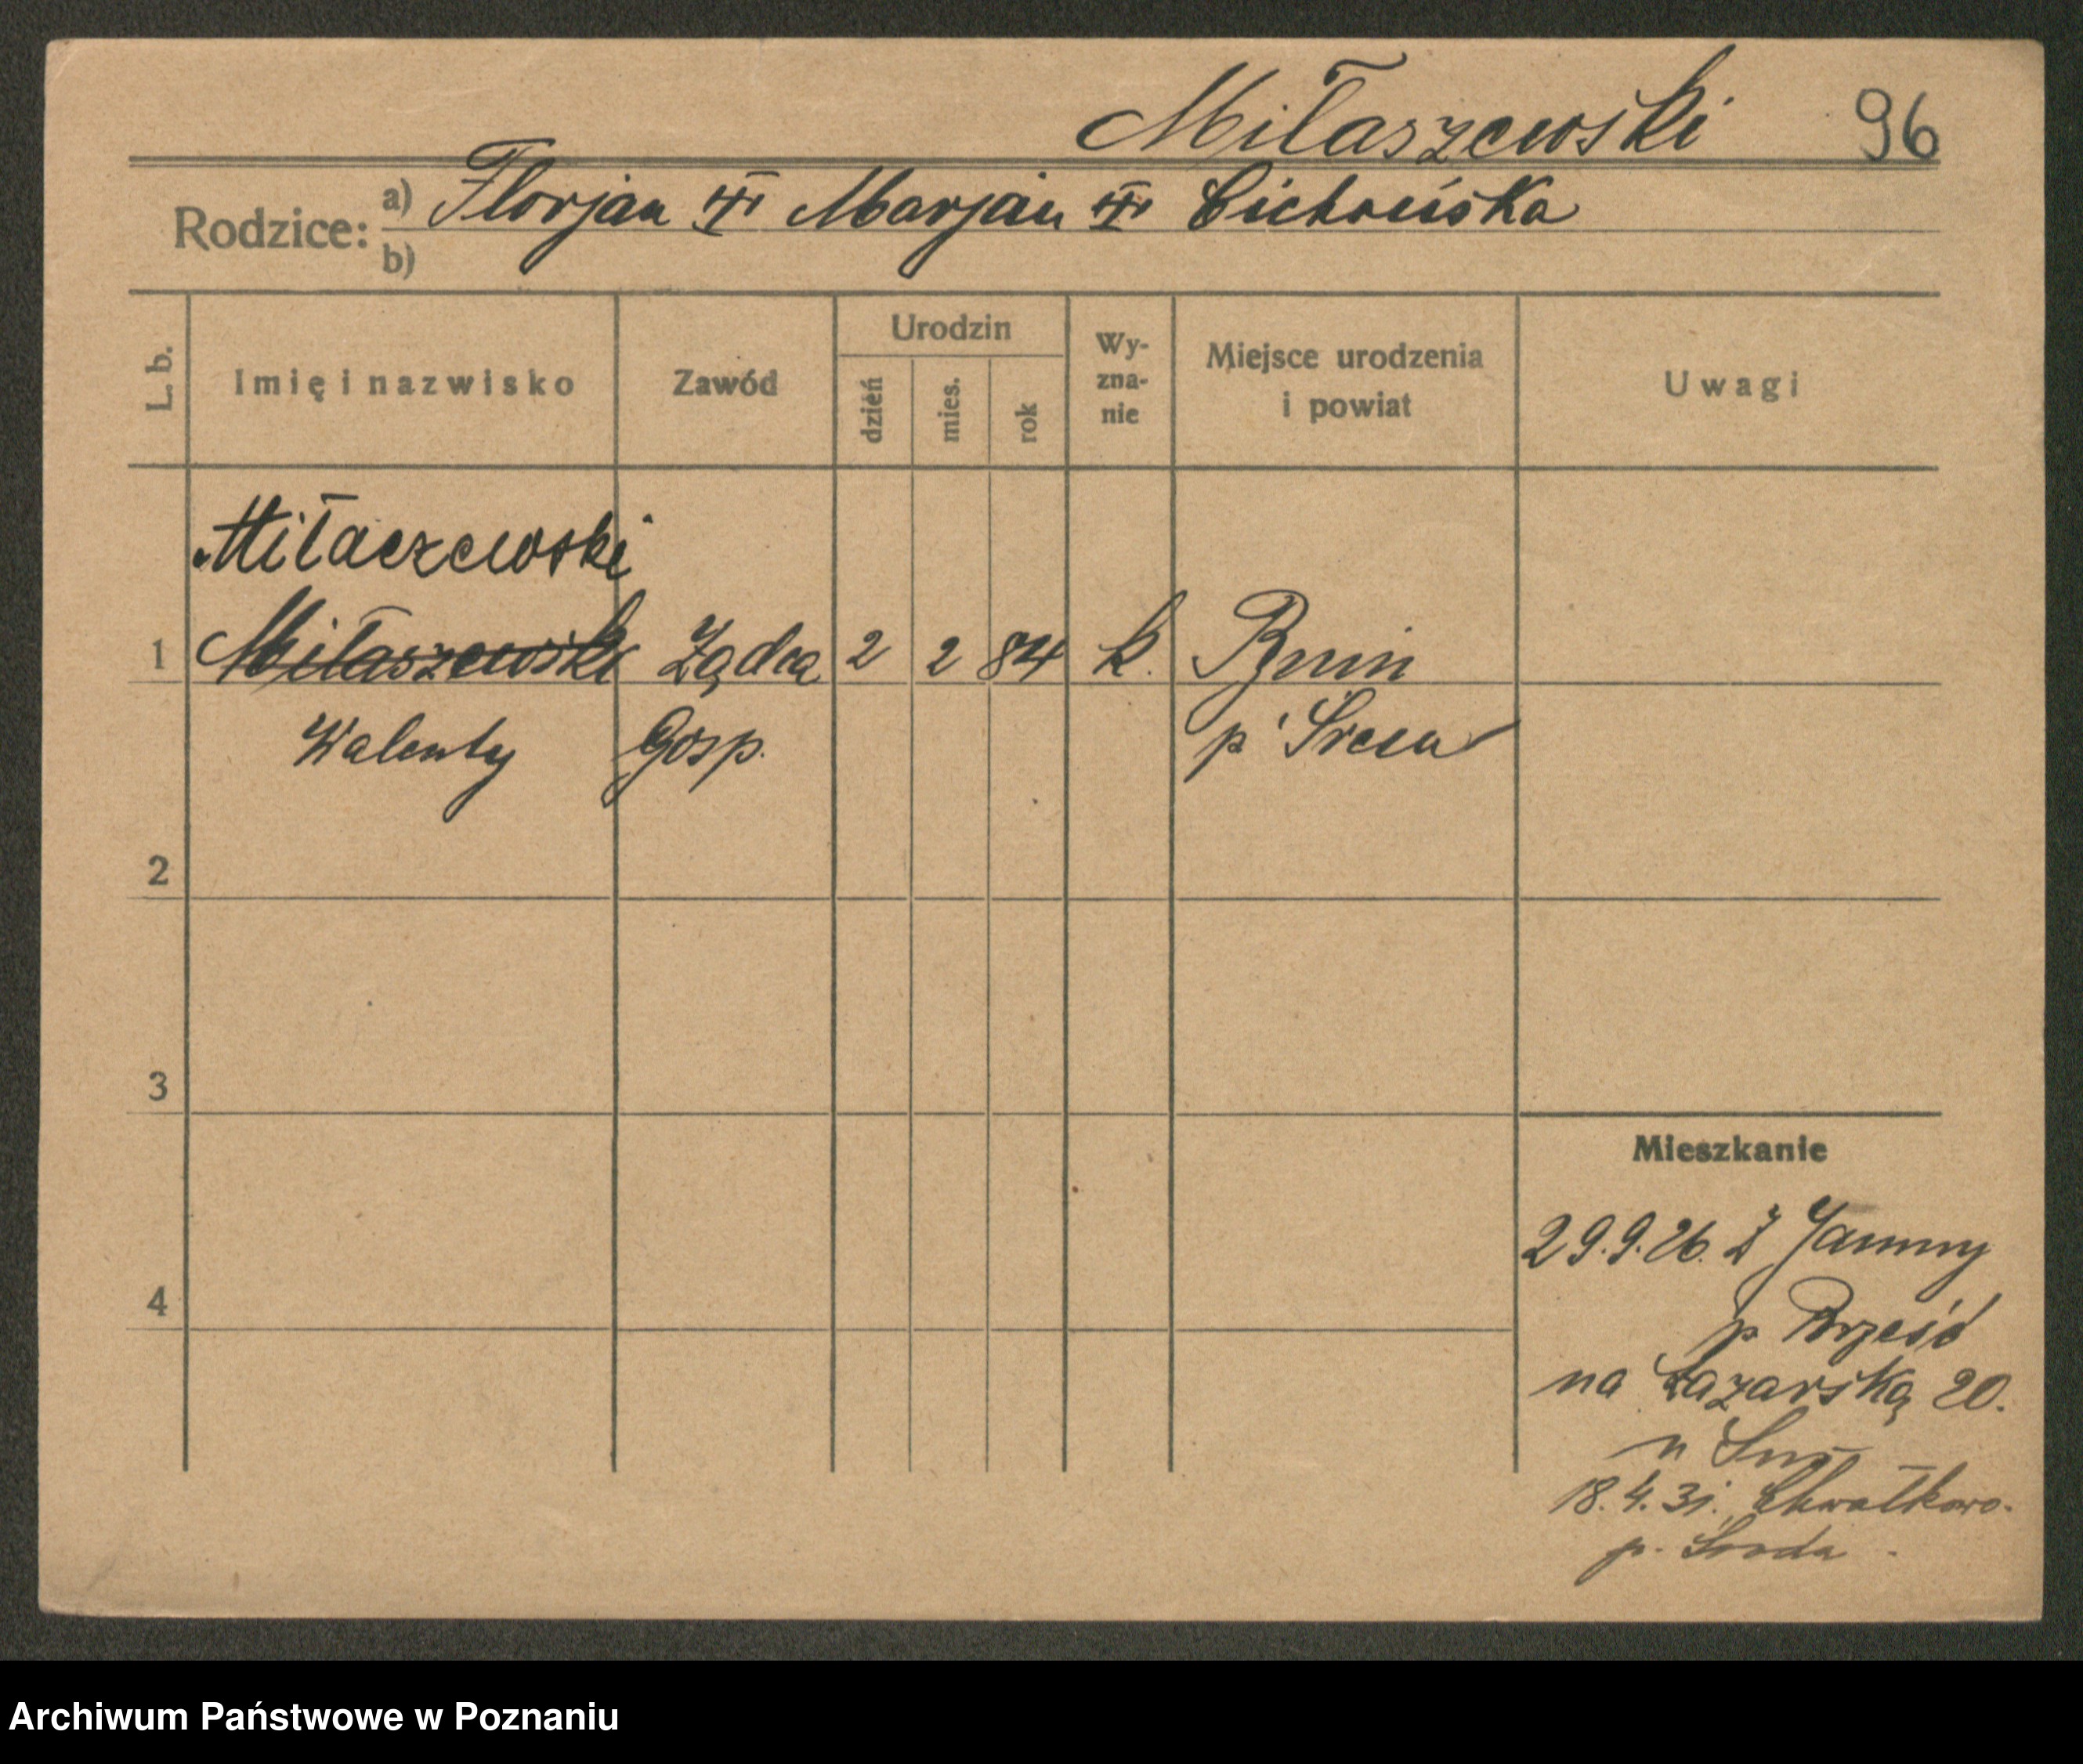 Miłaszewski 96
Rodzice: a) Florjan Marjan Cichońska
b)
L. b. Imię i nazwisko Zawód Urodzin dzień mies. rok Wy-zna-nie Miejsce urodzenia i powiat Uwagi
Miłaczewski
1 Miłaszewski Żądca 2 2 84 k. Bnin
Walenty Gosp. p Śrem
2
3
Mieszkanie
29.9.26. Z Janiny
4
p Brześć
na Łazarską 20.
18.4.31. Chwałkowo.
p. Środa
Archiwum Państwowe w Poznaniu